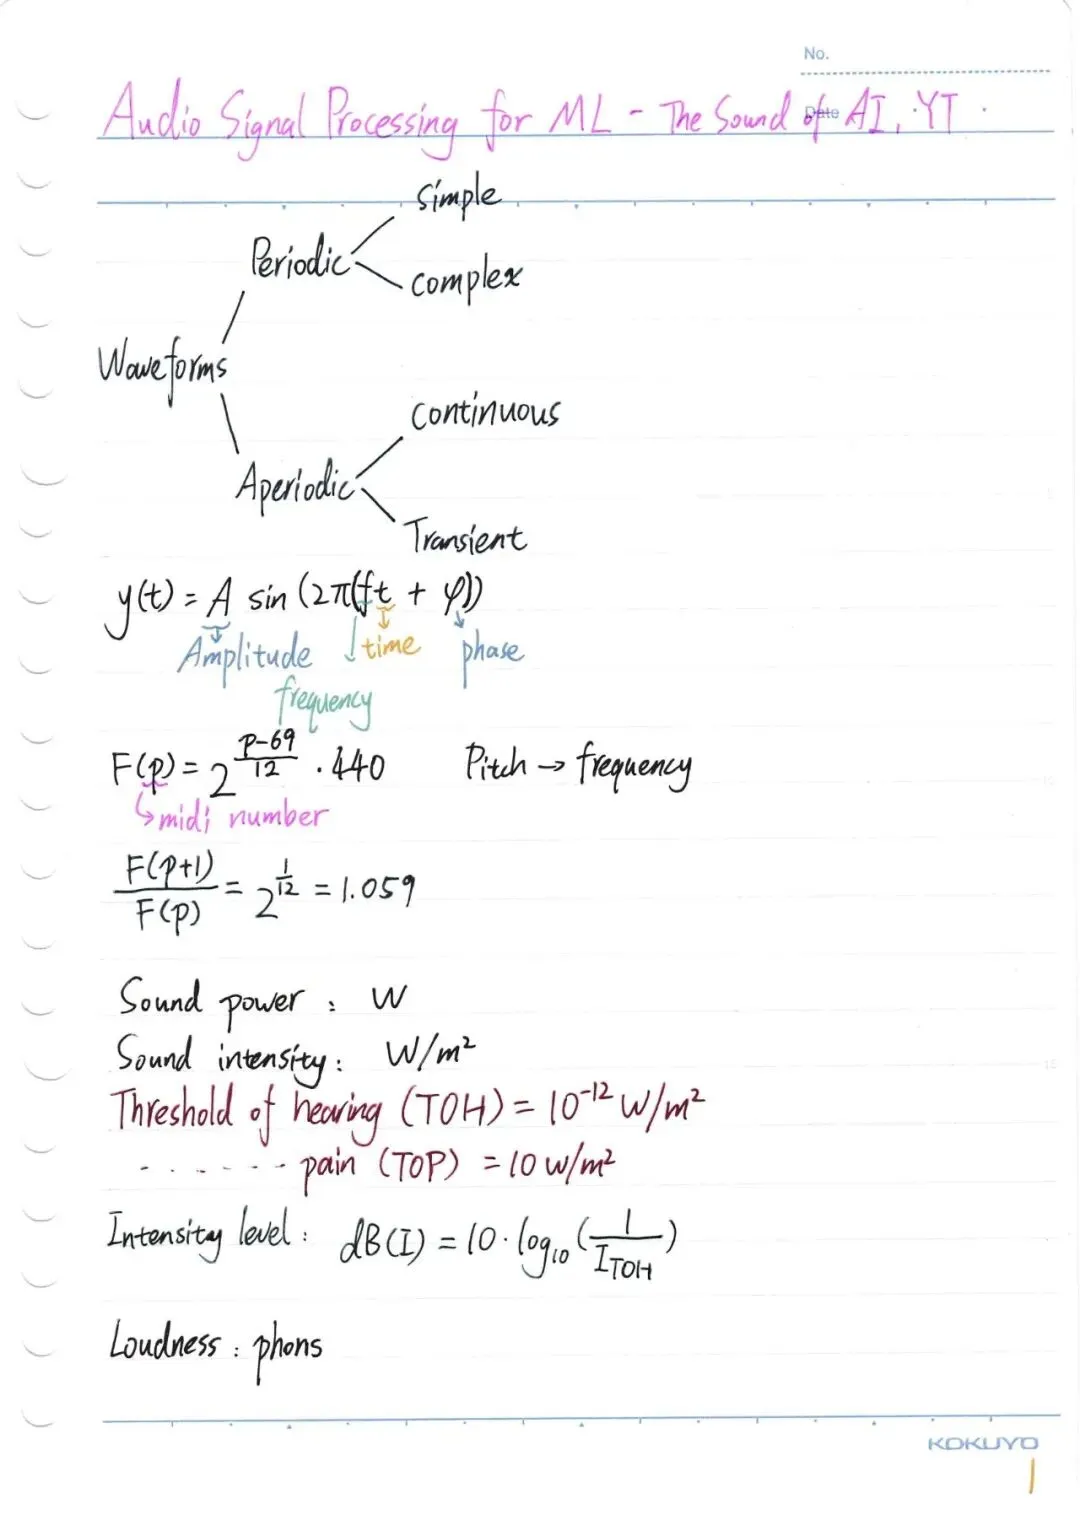 No.
Date
Audio Signal Processing for ML - The Sound of AI, YT.
Simple
Periodic
complex
Waveforms
Continuous
Aperiodic
Transient
y(t) = A sin (2π(ft + φ))
Amplitude time phase
frequency
F(p) = 2^((p-69)/12) · 440 Pitch → frequency
↳ midi number
F(p+1)/F(p) = 2^(1/12) = 1.059
Sound power : W
Sound intensity : W/m²
Threshold of hearing (TOH) = 10⁻¹² W/m²
- - - - - - - pain (TOP) = 10 W/m²
Intensity level : dB(I) = 10 · log₁₀ (I/I_TOH)
Loudness : phons
KOKUYO
1